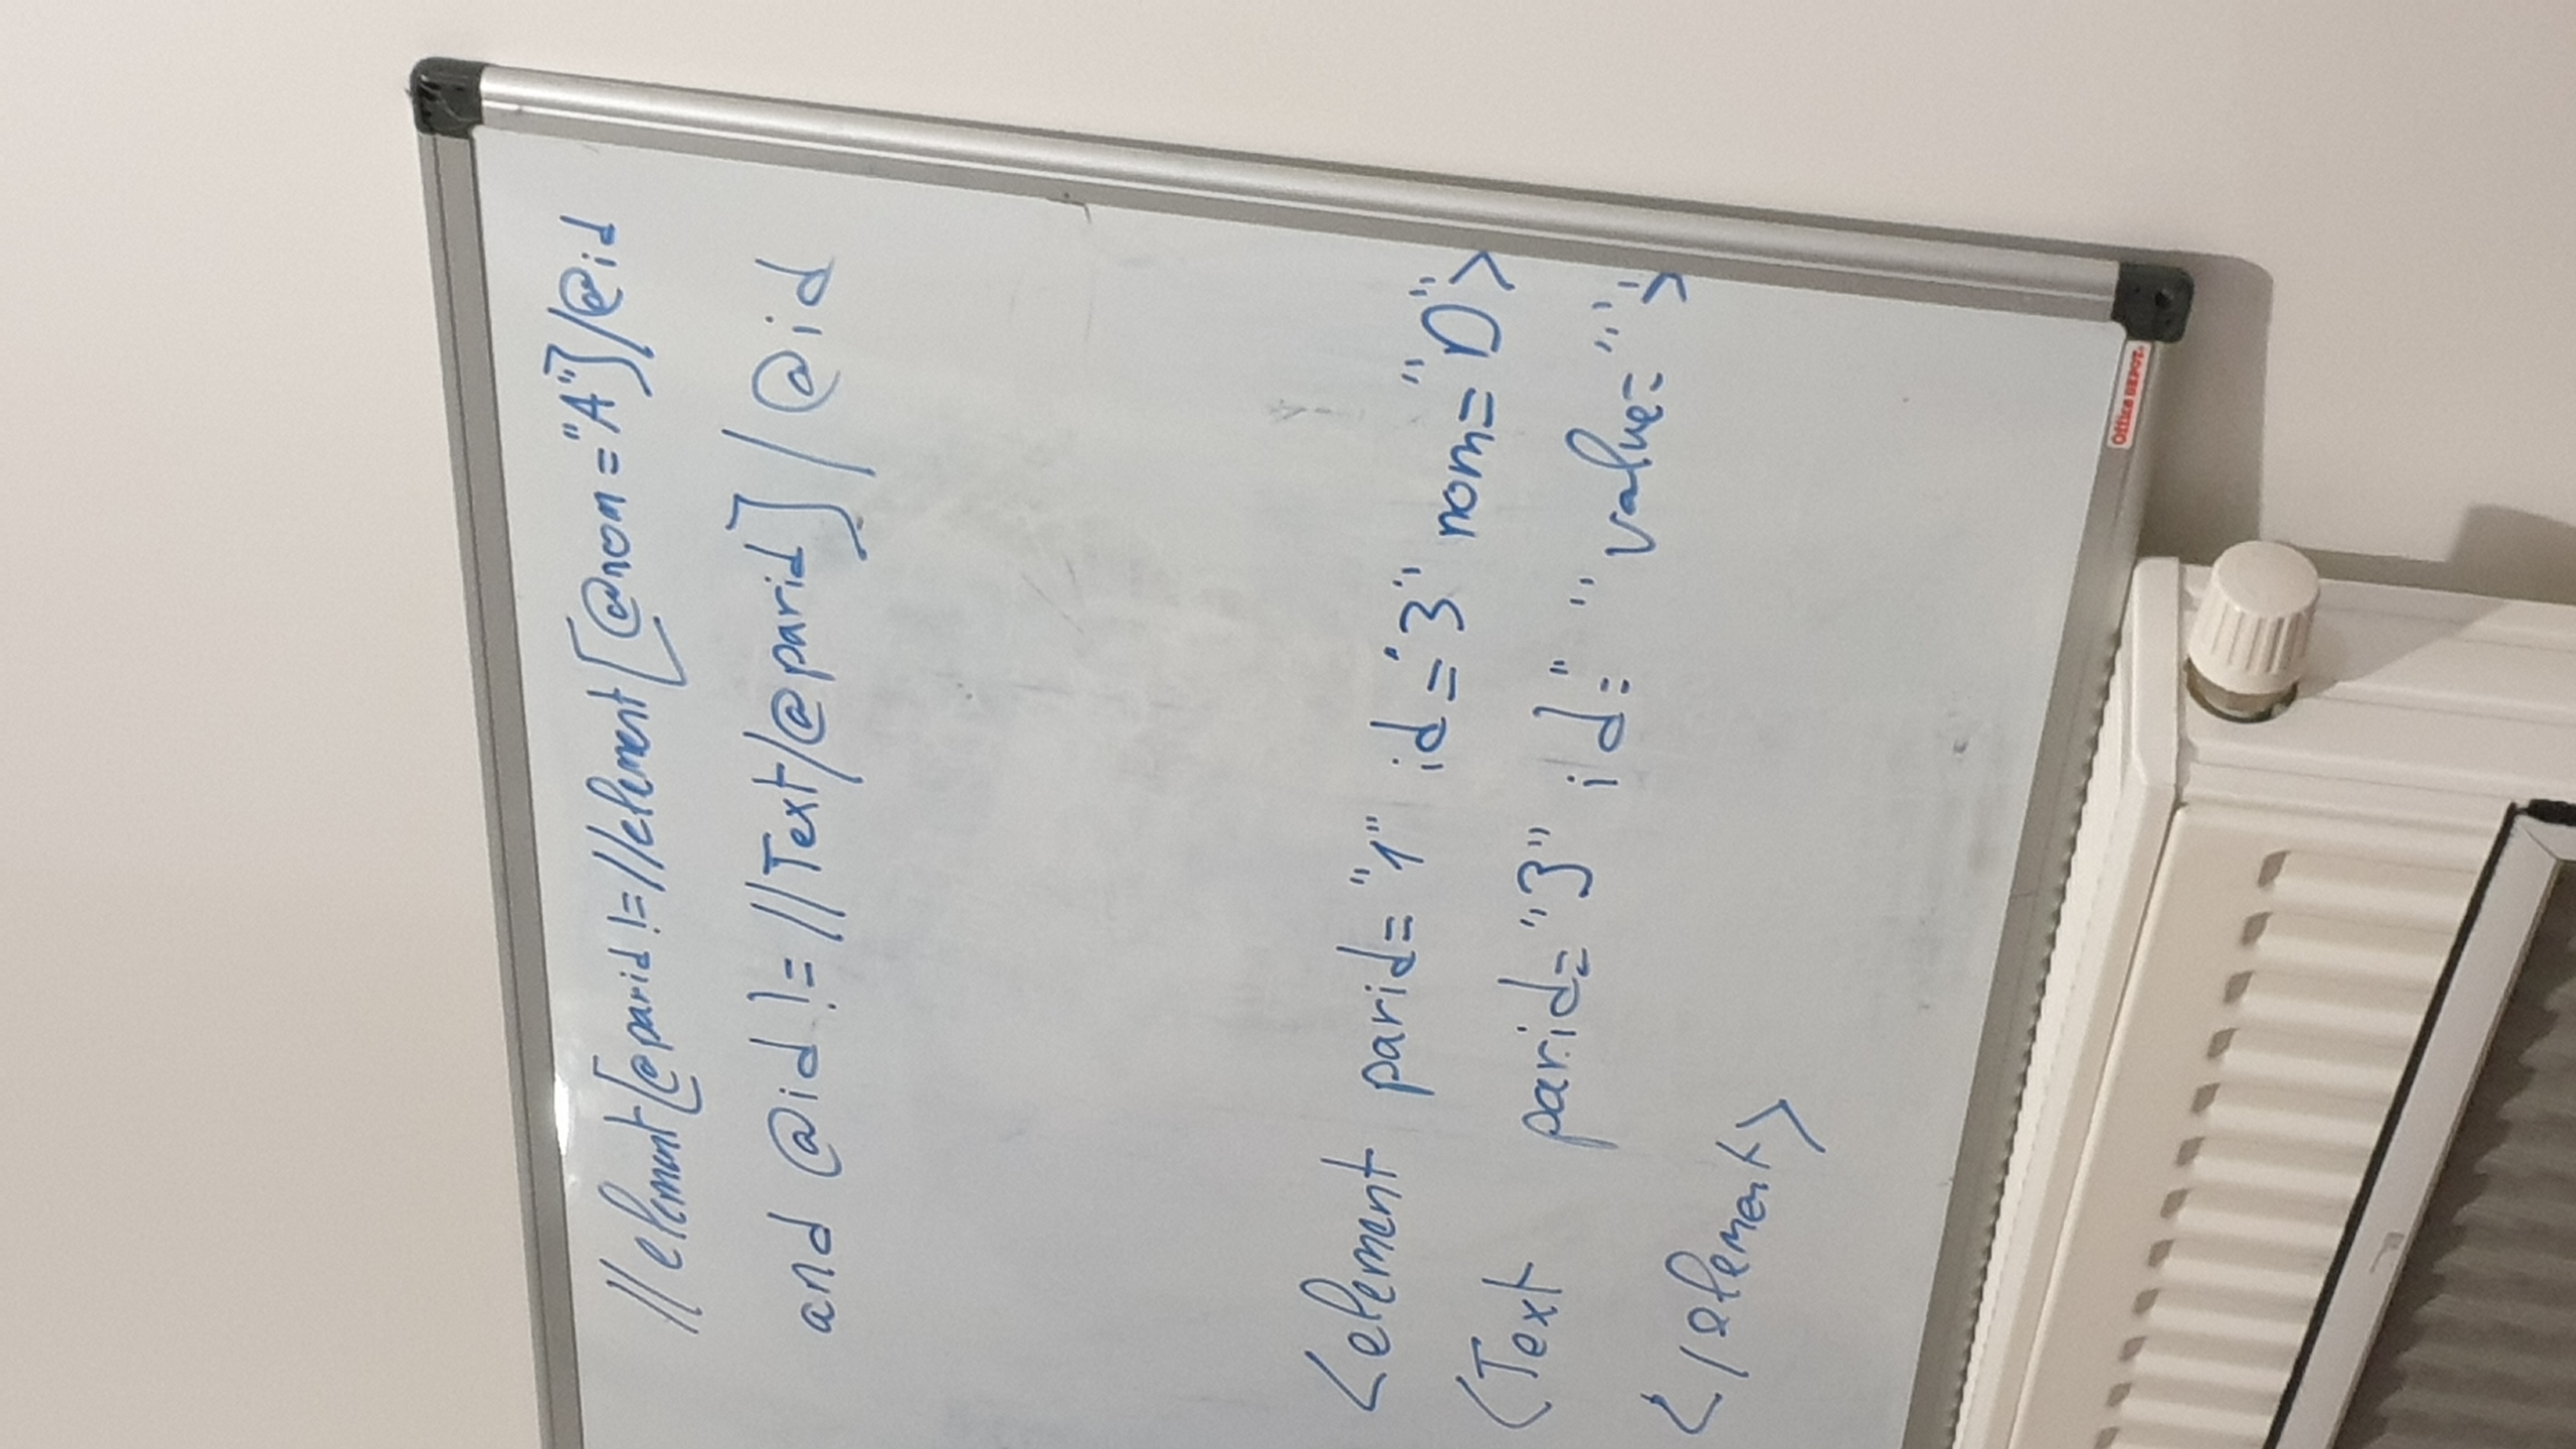 //element[@parid!=//element[@nom="A"]/@id
and @id != //Text/@parid]/@id
<element parid="1" id="3" nom="D">
<Text parid="3" id=" " value="">
</element>
Office DEPOT.